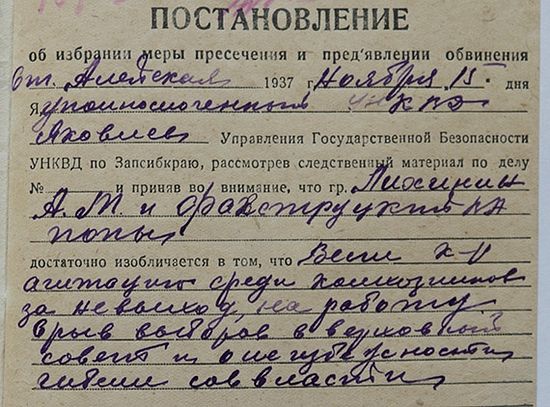 ПОСТАНОВЛЕНИЕ
об избрании меры пресечения и пред'явлении обвинения
Ст. Алейская 1937 г. Ноября 15 дня
Я, уполномоченный УНКВД
Яковлев Управления Государственной Безопасности
УНКВД по Запсибкраю, рассмотрев следственный материал по делу
№ и приняв во внимание, что гр.
А. М. и
попы
достаточно изобличается в том, что Вели к-р
агитацию среди колхозников
за невыход на работу
срыв выборов в верховный
совет и о неизбежности
гибели соввласти